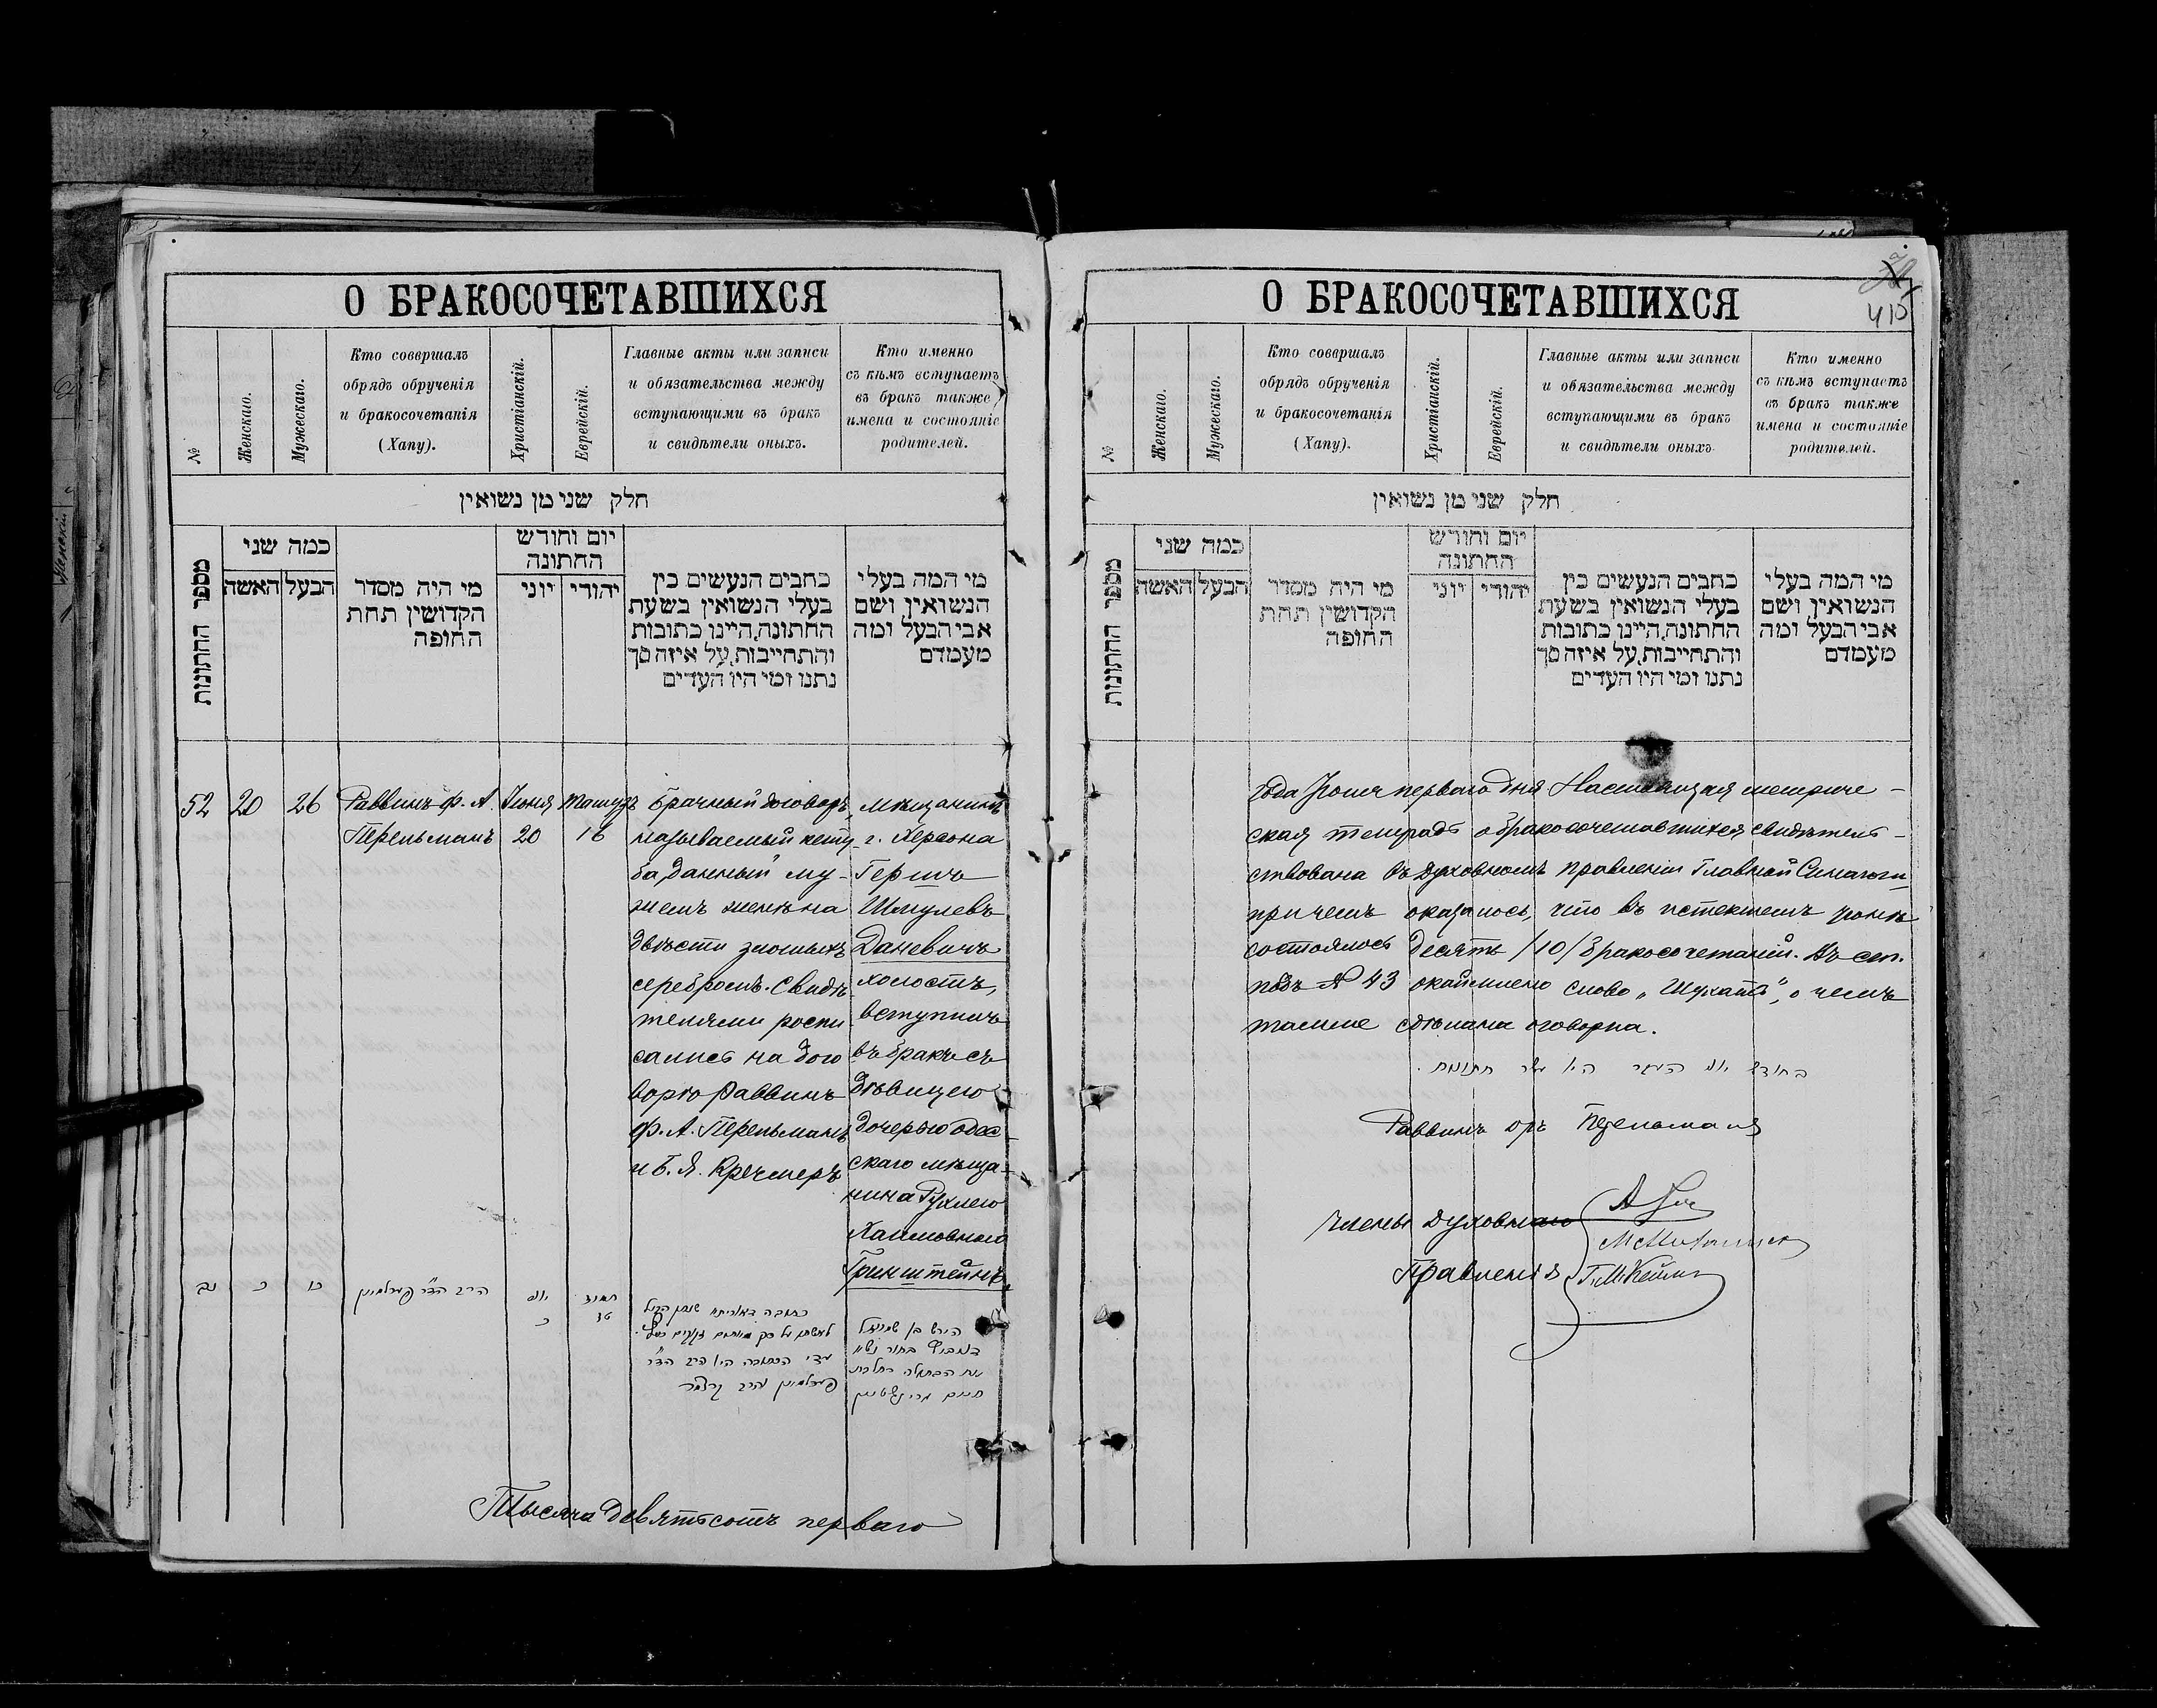 О БРАКОСОЧЕТАВШИХСЯ
№
Женскаго.
Мужескаго.
Кто совершалъ
обрядъ обрученія
и бракосочетанія
(Хапу).
Христіанскій.
Еврейскій.
Главные акты или записи
и обязательства между
вступающими въ бракъ
и свидѣтели оныхъ.
Кто именно
съ кѣмъ вступаетъ
въ бракъ также
имена и состояніе
родителей.
חלק שני מן נשואין
מספר החתונות
כמה שני
האשה
הבעל
מי היה מסדר
הקדושין תחת
החופה
יום וחודש
החתונה
יוני
יהודי
כתבים הנעשים בין
בעלי הנשואין בשעת
החתונה, היינו כתובות
והתחייבות, על איזה סך
נתנו ומי היו העדים
מי המה בעלי
הנשואין ושם
אבי הבעל ומה
מעמדם
52
20
26
Раввинъ Ф. А.
Перельманъ
Іюня
20
Тамузъ
16
Брачный договоръ,
называемый кету-
ба, данный му-
жемъ женѣ на
двѣсти злотыхъ
серебромъ. Свидѣ-
телями роспи
сались на дого
ворѣ Раввинъ
Ф. А. Перельманъ
и Б. Я. Кречмеръ
мѣщанинъ
г. Херсона
Гершъ
Шмулевъ
Даневичъ
холостъ,
вступилъ
въ бракъ съ
дѣвицею
дочерью одес-
скаго мѣща-
нина Рухлею
Хаимовною
Гринштейнъ
נב
כ
כו
הרב הד״ר פערלמאן
יוני
כ
תמוז
טז
הירש בן שמואל
Тысяча девятьсотъ перваго
О БРАКОСОЧЕТАВШИХСЯ
415
№
Женскаго.
Мужескаго.
Кто совершалъ
обрядъ обрученія
и бракосочетанія
(Хапу).
Христіанскій.
Еврейскій.
Главные акты или записи
и обязательства между
вступающими въ бракъ
и свидѣтели оныхъ.
Кто именно
съ кѣмъ вступаетъ
въ бракъ также
имена и состояніе
родителей.
חלק שני מן נשואין
מספר החתונות
כמה שני
האשה
הבעל
מי היה מסדר
הקדושין תחת
החופה
יום וחודש
החתונה
יוני
יהודי
כתבים הנעשים בין
בעלי הנשואין בשעת
החתונה, היינו כתובות
והתחייבות, על איזה סך
נתנו ומי היו העדים
מי המה בעלי
הנשואין ושם
אבי הבעל ומה
מעמדם
года Іюля перваго дня Настоящая метриче-
ская тетрадь о бракосочетавшихся свидѣтель-
ствована въ духовномъ правленіи Главной Синагоги
причемъ оказалось, что въ истекшемъ Іюнѣ
состоялось десять /10/ бракосочетаній. Въ ст.
подъ № 43 окаймлено слово „Шухатъ", о чемъ
тамже сдѣлана оговорка.
Раввинъ Перельманъ
Члены Духовнаго
Правленія